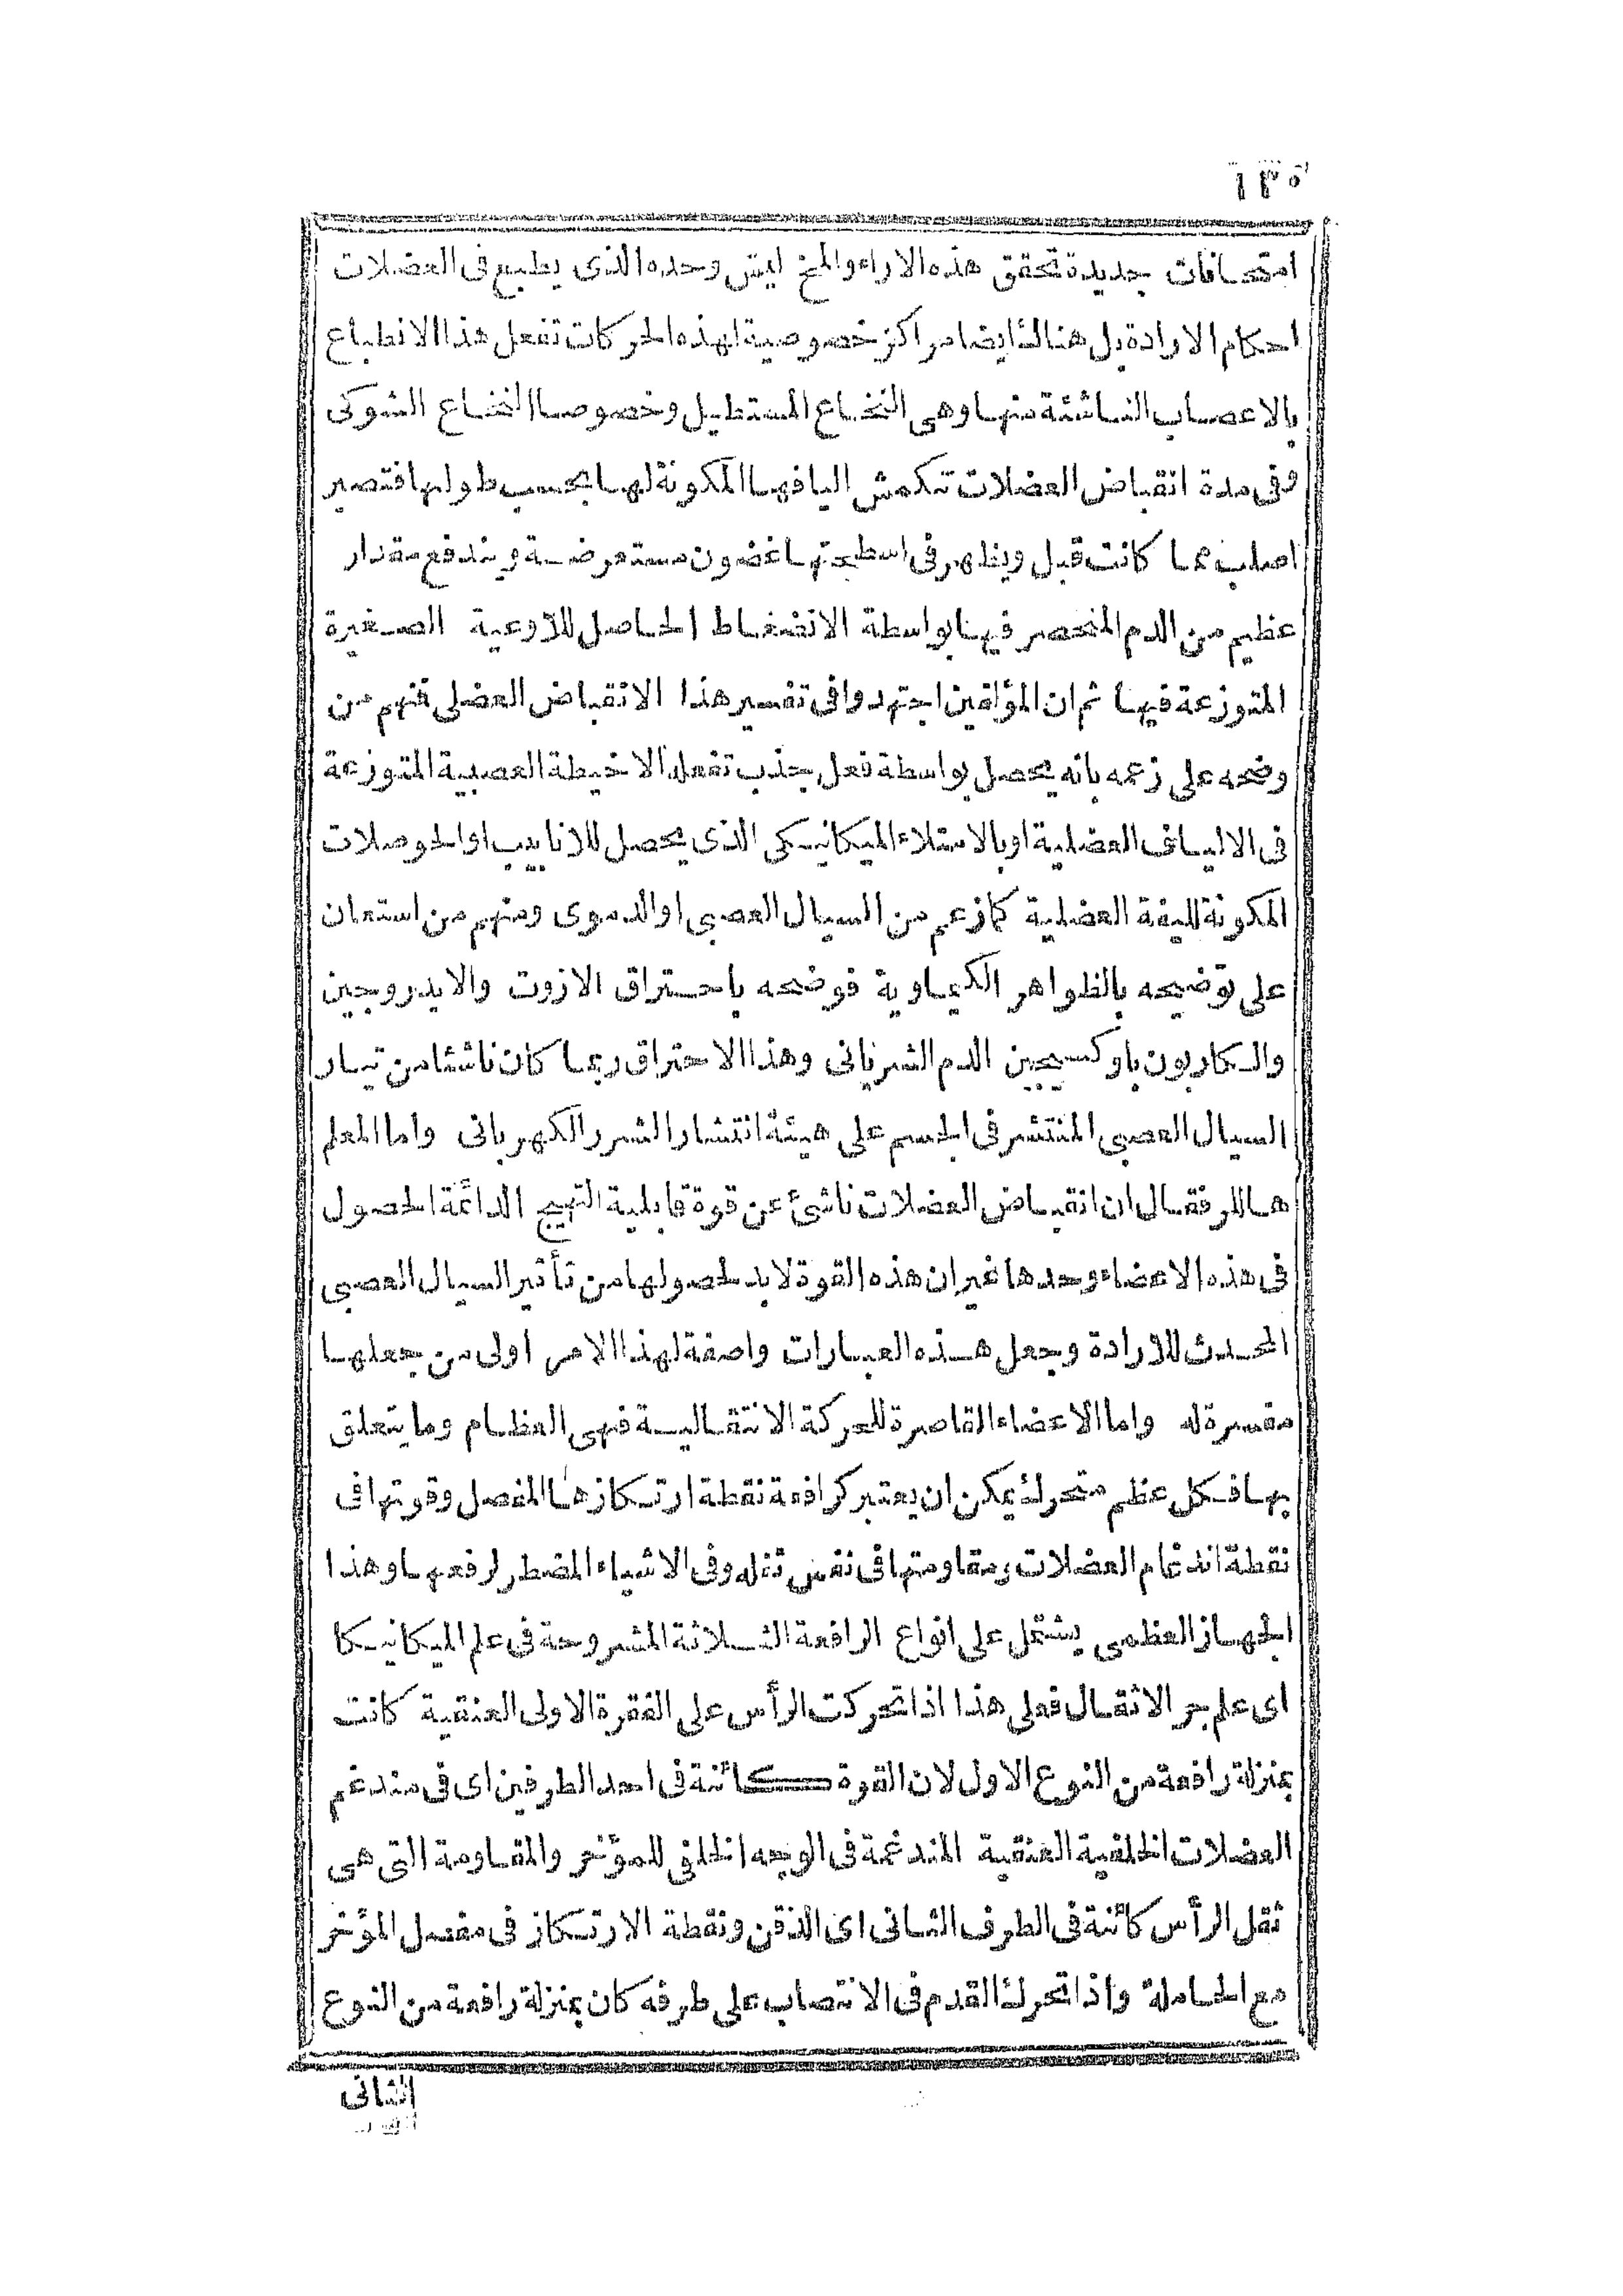 ١٣٠
امتحانات جديدة تحقق هذه الاراء والمخ ليس وحده الذى يطبع فى العضلات
احكام الارادة بل هناك ايضا مراكز خصوصية لهذه الحركات تفعل هذا الانطباع
بالاعصاب الناشئة منها وهى النخاع المستطيل وخصوصا النخاع الشوكى
وفى مدة انقباض العضلات تنكمش اليافها المكونة لها بحسب طولها فتصير
اصلب مما كانت قبل ويظهر فى اسطحتها غضون مستعرضة ويندفع مقدار
عظيم من الدم المنحصر فيها بواسطة الانضغاط الحاصل للاوعية الصغيرة
المتوزعة فيها ثم ان المؤلفين اجتهدوا فى تفسير هذا الانقباض العضلى فمنهم من
وضحه على زعمه بانه يحصل بواسطة فعل جذب تفعله الاخيطة العصبية المتوزعة
فى الالياف العضلية او بالامتلاء الميكانيكى الذى يحصل للانابيب او الحوصلات
المكونة لليفة العضلية كما زعم من السيال العصبى او الدموى ومنهم من استعان
على توضيحه بالظواهر الكيماوية فوضحه باحتراق الازوت والايدروجين
والكاربون باوكسيجين الدم الشريانى وهذا الاحتراق ربما كان ناشئا من تيار
السيال العصبى المنتشر فى الجسم على هيئة انتشار الشرر الكهربانى واما المعلم
هاللر فقال ان انقباض العضلات ناشئ عن قوة قابلية التهيج الدائمة الحصول
فى هذه الاعضاء وحدها غير ان هذه القوة لا بد لحصولها من تأثير السيال العصبى
المحدث للارادة وجعل هذه العبارات واصفة لهذا الامر اولى من جعلها
مفسرة له واما الاعضاء القاصرة للحركة الانتقالية فهى العظام وما يتعلق
بها فكل عظم متحرك يمكن ان يعتبر كرافعة نقطة ارتكازها المفصل وقوتها فى
نقطة اندغام العضلات ومقاومتها فى نفس ثقله وفى الاشياء المضطر لرفعها وهذا
الجهاز العظمى يشتمل على انواع الرافعة الثلاثة المشروحة فى علم الميكانيكا
اى علم جر الاثقال فعلى هذا اذا تحركت الرأس على الفقرة الاولى العنقية كانت
بمنزلة رافعة من النوع الاول لان القوة كائنة فى احد الطرفين اى فى مندغم
العضلات الخلفية العنقية المندغمة فى الوجه الخلفى للمؤخر والمقاومة التى هى
ثقل الرأس كائنة فى الطرف الثانى اى الذقن ونقطة الارتكاز فى مفصل المؤخر
مع الحاملة واذا تحرك القدم فى الانتصاب على طرفه كان بمنزلة رافعة من النوع
الثانى